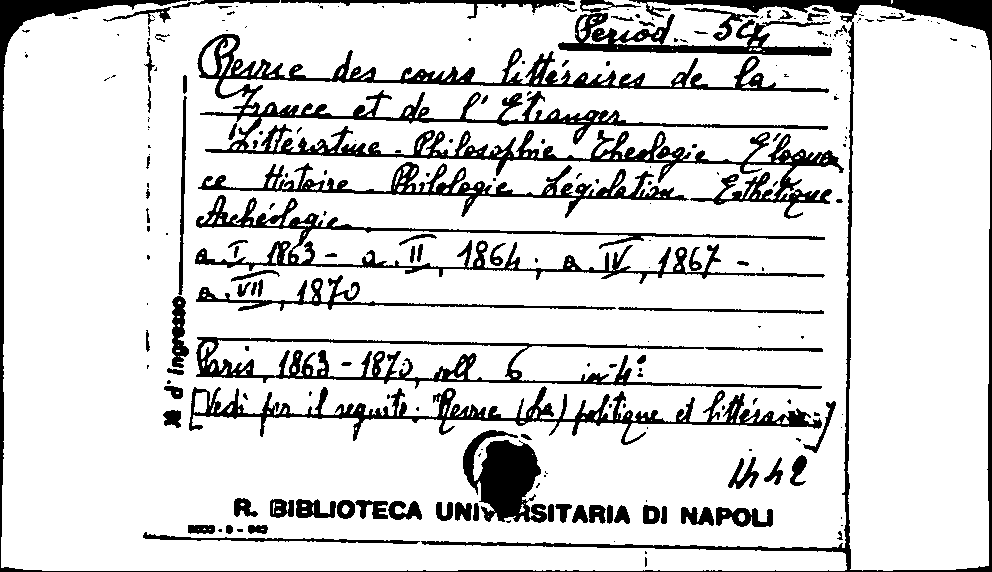 Period. - 504
Revue des cours littéraires de la
France et de l' Étranger
Littérature - Philosophie - Theologie - Éloquen
ce Histoire - Philologie - Législation - Esthétique -
Archéologie.
a. I, 1863 - a. II, 1864; a. IV, 1867 -
a. VII, 1870.
Paris, 1863 - 1870, voll. 6 in-4°
[Vedi per il seguito: "Revue (La) politique et littéraire"]
N. d' ingresso
1442
R. BIBLIOTECA UNIVERSITARIA DI NAPOLI